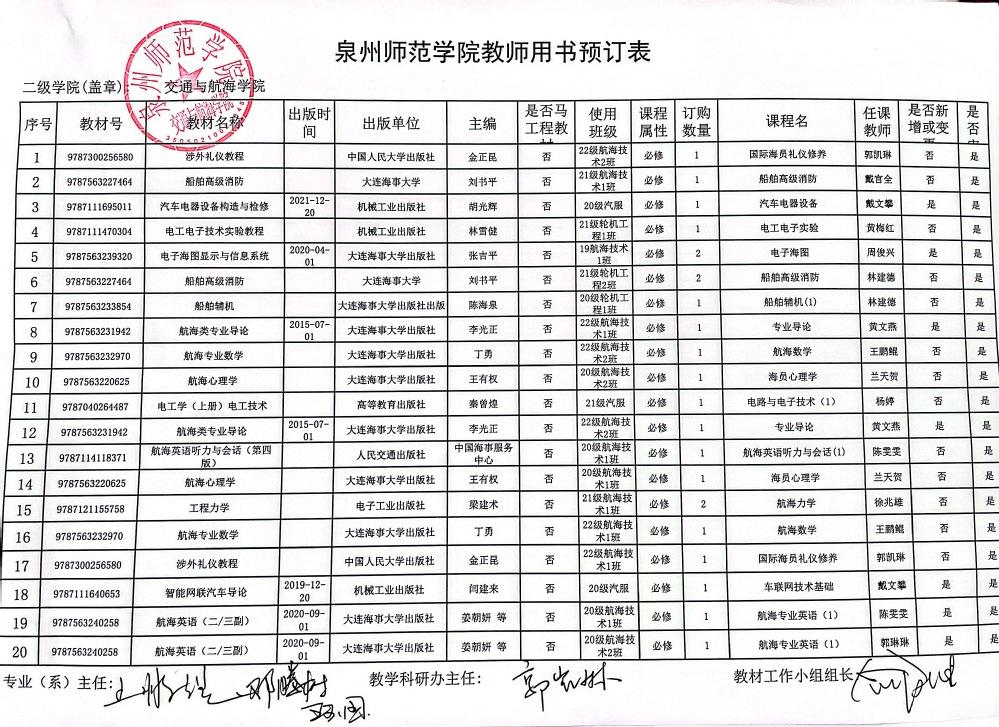 泉州师范学院教师用书预订表
二级学院(盖章): 交通与航海学院
泉州师范学院
序号 教材号 教材名称 出版时间 出版单位 主编 是否马工程教材 使用班级 课程属性 订购数量 课程名 任课教师 是否新增或变更 是否
1 9787300256580 涉外礼仪教程 中国人民大学出版社 金正昆 否 22级航海技术2班 必修 1 国际海员礼仪修养 郭凯琳 否 是
2 9787563227464 船舶高级消防 大连海事大学 刘书平 否 21级航海技术1班 必修 1 船舶高级消防 戴宫全 否 是
3 9787111695011 汽车电器设备构造与检修 2021-12-20 机械工业出版社 胡光辉 否 20级汽服 必修 1 汽车电器设备 戴文攀 是 是
4 9787111470304 电工电子技术实验教程 机械工业出版社 林雪健 否 21级轮机工程1班 必修 1 电工电子实验 黄梅红 否 是
5 9787563239320 电子海图显示与信息系统 2020-04-01 大连海事大学出版社 张吉平 否 19航海技术1班 必修 2 电子海图 周俊兴 是 是
6 9787563227464 船舶高级消防 大连海事大学 刘书平 否 21级轮机工程2班 必修 2 船舶高级消防 林建德 否 是
7 9787563233854 船舶辅机 大连海事大学出版社出版 陈海泉 否 20级轮机工程1班 必修 1 船舶辅机(1) 林建德 否 是
8 9787563231942 航海类专业导论 2015-07-01 大连海事大学出版社 李光正 否 22级航海技术1班 必修 1 专业导论 黄文燕 是 是
9 9787563232970 航海专业数学 大连海事大学出版社 丁勇 否 22级航海技术2班 必修 1 航海数学 王鹏鲲 否 是
10 9787563220625 航海心理学 大连海事大学出版社 王有权 否 20级航海技术2班 必修 1 海员心理学 兰天贺 否 是
11 9787040264487 电工学（上册）电工技术 高等教育出版社 秦曾煌 否 21级汽服 必修 1 电路与电子技术（1） 杨婷 否 是
12 9787563231942 航海类专业导论 2015-07-01 大连海事大学出版社 李光正 否 22级航海技术2班 必修 1 专业导论 黄文燕 是 是
13 9787114118371 航海英语听力与会话（第四版） 人民交通出版社 中国海事服务中心 否 20级航海技术1班 必修 1 航海英语听力与会话(1) 陈雯雯 否 是
14 9787563220625 航海心理学 大连海事大学出版社 王有权 否 20级航海技术1班 必修 1 海员心理学 兰天贺 否 是
15 9787121155758 工程力学 电子工业出版社 梁建术 否 21级航海技术1班 必修 2 航海力学 徐兆雄 否 是
16 9787563232970 航海专业数学 大连海事大学出版社 丁勇 否 22级航海技术1班 必修 1 航海数学 王鹏鲲 否 是
17 9787300256580 涉外礼仪教程 中国人民大学出版社 金正昆 否 22级航海技术1班 必修 1 国际海员礼仪修养 郭凯琳 否 是
18 9787111640653 智能网联汽车导论 2019-12-20 机械工业出版社 闫建来 否 20级汽服 必修 1 车联网技术基础 戴文攀 是 是
19 9787563240258 航海英语（二/三副） 2020-09-01 大连海事大学出版社 姜朝妍 等 否 20级航海技术1班 必修 1 航海专业英语（1） 陈雯雯 是 是
20 9787563240258 航海英语（二/三副） 2020-09-01 大连海事大学出版社 姜朝妍 等 否 20级航海技术2班 必修 1 航海专业英语（1） 郭琳琳 是 是
专业（系）主任: 教学科研办主任: 教材工作小组组长